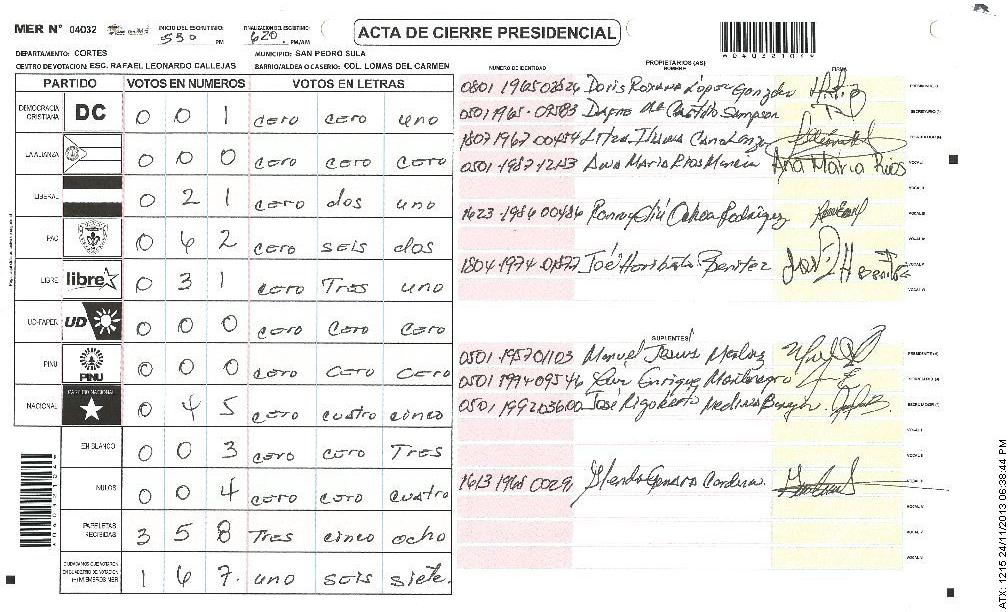 MER N° 04032 INICIO DEL ESCRUTINIO: 550 PM FINALIZACION DEL ESCRUTINIO: 620 PM/AM ACTA DE CIERRE PRESIDENCIAL
DEPARTAMENTO: CORTES MUNICIPIO: SAN PEDRO SULA
CENTRO DE VOTACION: ESC. RAFAEL LEONARDO CALLEJAS BARRIO/ALDEA O CASERIO: COL. LOMAS DEL CARMEN
PARTIDO VOTOS EN NUMEROS VOTOS EN LETRAS
DEMOCRACIA CRISTIANA DC 0 0 1 cero cero uno
LA ALIANZA 0 0 0 cero cero cero
LIBERAL 0 2 1 cero dos uno
PAC 0 6 2 cero seis dos
LIBRE libre 0 3 1 cero Tres uno
UD-FAPER UD 0 0 0 cero cero cero
PINU PINU 0 0 0 cero cero cero
NACIONAL PARTIDO NACIONAL 0 4 5 cero cuatro cinco
EN BLANCO 0 0 3 cero cero Tres
NULOS 0 0 4 cero cero cuatro
PAPELETAS RECIBIDAS 3 5 8 Tres cinco ocho
CIUDADANOS QUE VOTARON EN CUADERNO DE VOTACION 1 6 7. uno seis siete.
NUMERO DE IDENTIDAD PROPIETARIOS (AS) NOMBRE FIRMA
Doris Roxana Lopez Gonzalez PRESIDENTE
0501 1965-09583 Castillo Sampson SECRETARIO
1807 1967 00454
0501-1987-12 Ana Maria Rios Ana Maria Rios
1623-1986 00486 Ochoa Rodriguez
1804-1974-01877 José Heriberto Benitez
SUPLENTES
0501-195701103 Manuel Jesus PRESIDENTE
0501 1974-09546 Luis Enrique Montenegro SECRETARIO
0501 199203600 José Rigoberto Medina
1613 1968 00291
ATX: 1215 24/11/2013 06:38:44 PM